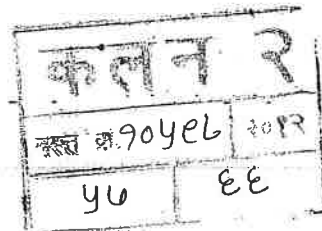 कलन २
दस्त क्र.१०५९८ २०१२
५७ ६६